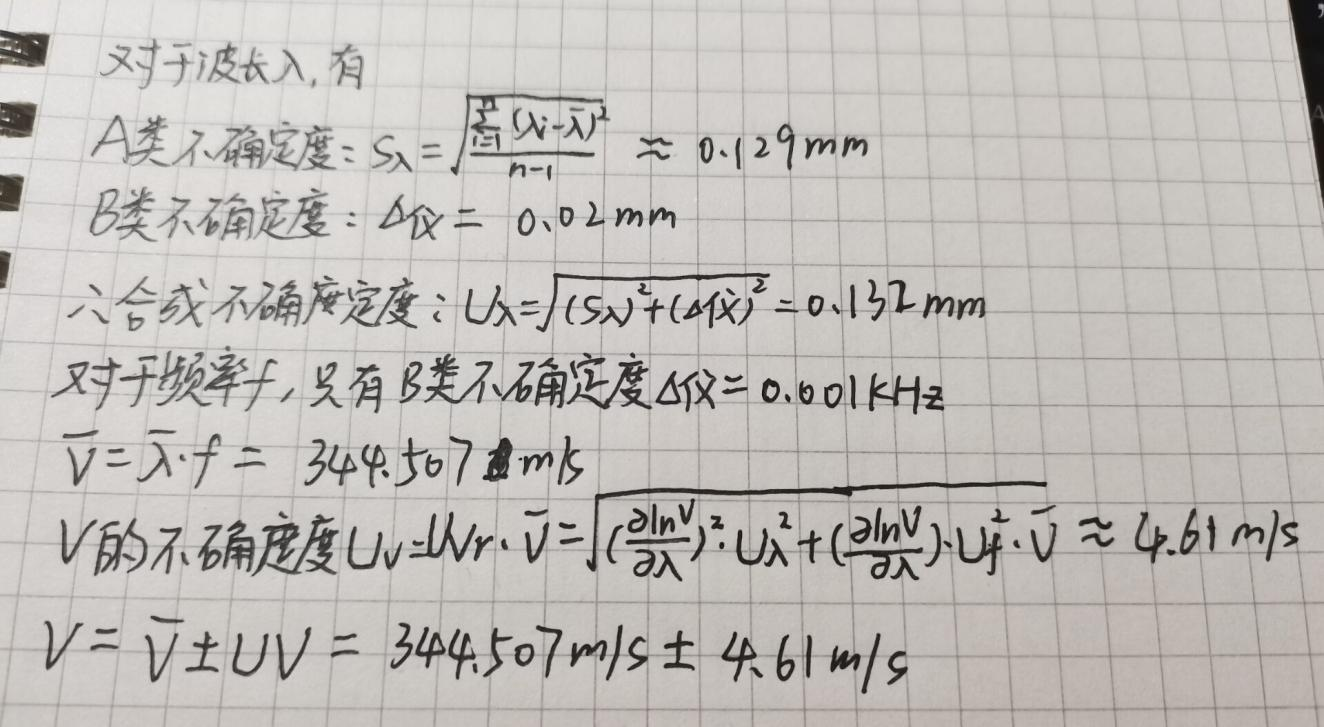 对于波长λ,有
A类不确定度:Sλ=√(∑ᵢ₌₁ⁿ(λi-λ̄)²/(n-1)) ≈ 0.129mm
B类不确定度:Δ仪= 0.02mm
∴合成不确度定度:Uλ=√((Sλ)²+(Δ仪)²)=0.132mm
对于频率f,只有B类不确定度Δ仪=0.001KHz
V̄=λ̄·f= 344.507 m/s
V的不确度度Uv=UVr·V̄=√((∂lnV/∂λ)²·Uλ²+(∂lnV/∂λ)·Uf²·V̄) ≈ 4.61m/s
V=V̄±UV= 344.507m/s± 4.61m/s